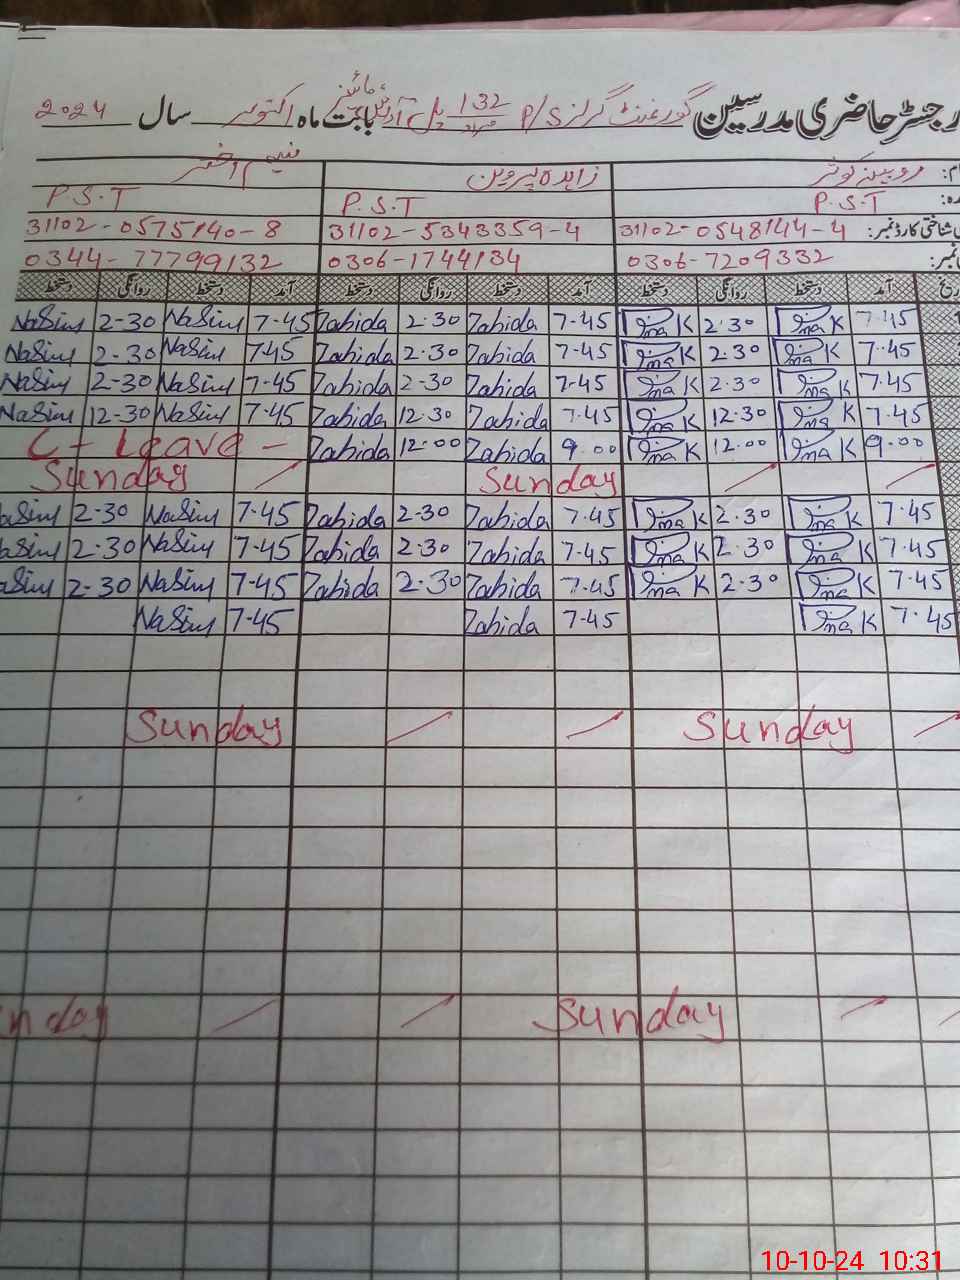 رجسٹر حاضری مدرسین گورنمنٹ گرلز P/S 132 مراد بابت ماہ اکتوبر سال 2024
نام: روبینہ کوثر زاہدہ پروین نسیم اختر
عہدہ: P.S.T P.S.T P.S.T
شناختی کارڈ نمبر: 31102-0548144-4 31102-5343359-4 31102-0575140-8
نمبر: 0306-7209332 0306-1744134 0344-77799132
تاریخ آمد دستخط روانگی دستخط آمد دستخط روانگی دستخط آمد دستخط روانگی دستخط
NaSim 2-30 NaSim 7-45 Zahida 2-30 Zahida 7-45 K 2-30 K 7-45
NaSim 2-30 NaSim 7-45 Zahida 2-30 Zahida 7-45 K 2-30 K 7-45
NaSim 2-30 NaSim 7-45 Zahida 2-30 Zahida 7-45 K 2-30 K 7-45
NaSim 12-30 NaSim 7-45 Zahida 12-30 Zahida 7-45 K 12-30 K 7-45
C + Leave - Zahida 12-00 Zahida 9-00 K 12-00 K 9-00
Sunday Sunday
aSim 2-30 NaSim 7-45 Zahida 2-30 Zahida 7-45 K 2-30 K 7-45
aSim 2-30 NaSim 7-45 Zahida 2-30 Zahida 7-45 K 2-30 K 7-45
aSim 2-30 NaSim 7-45 Zahida 2-30 Zahida 7-45 K 2-30 K 7-45
NaSim 7-45 Zahida 7-45 K 7-45
Sunday Sunday
nday Sunday
10-10-24 10:31